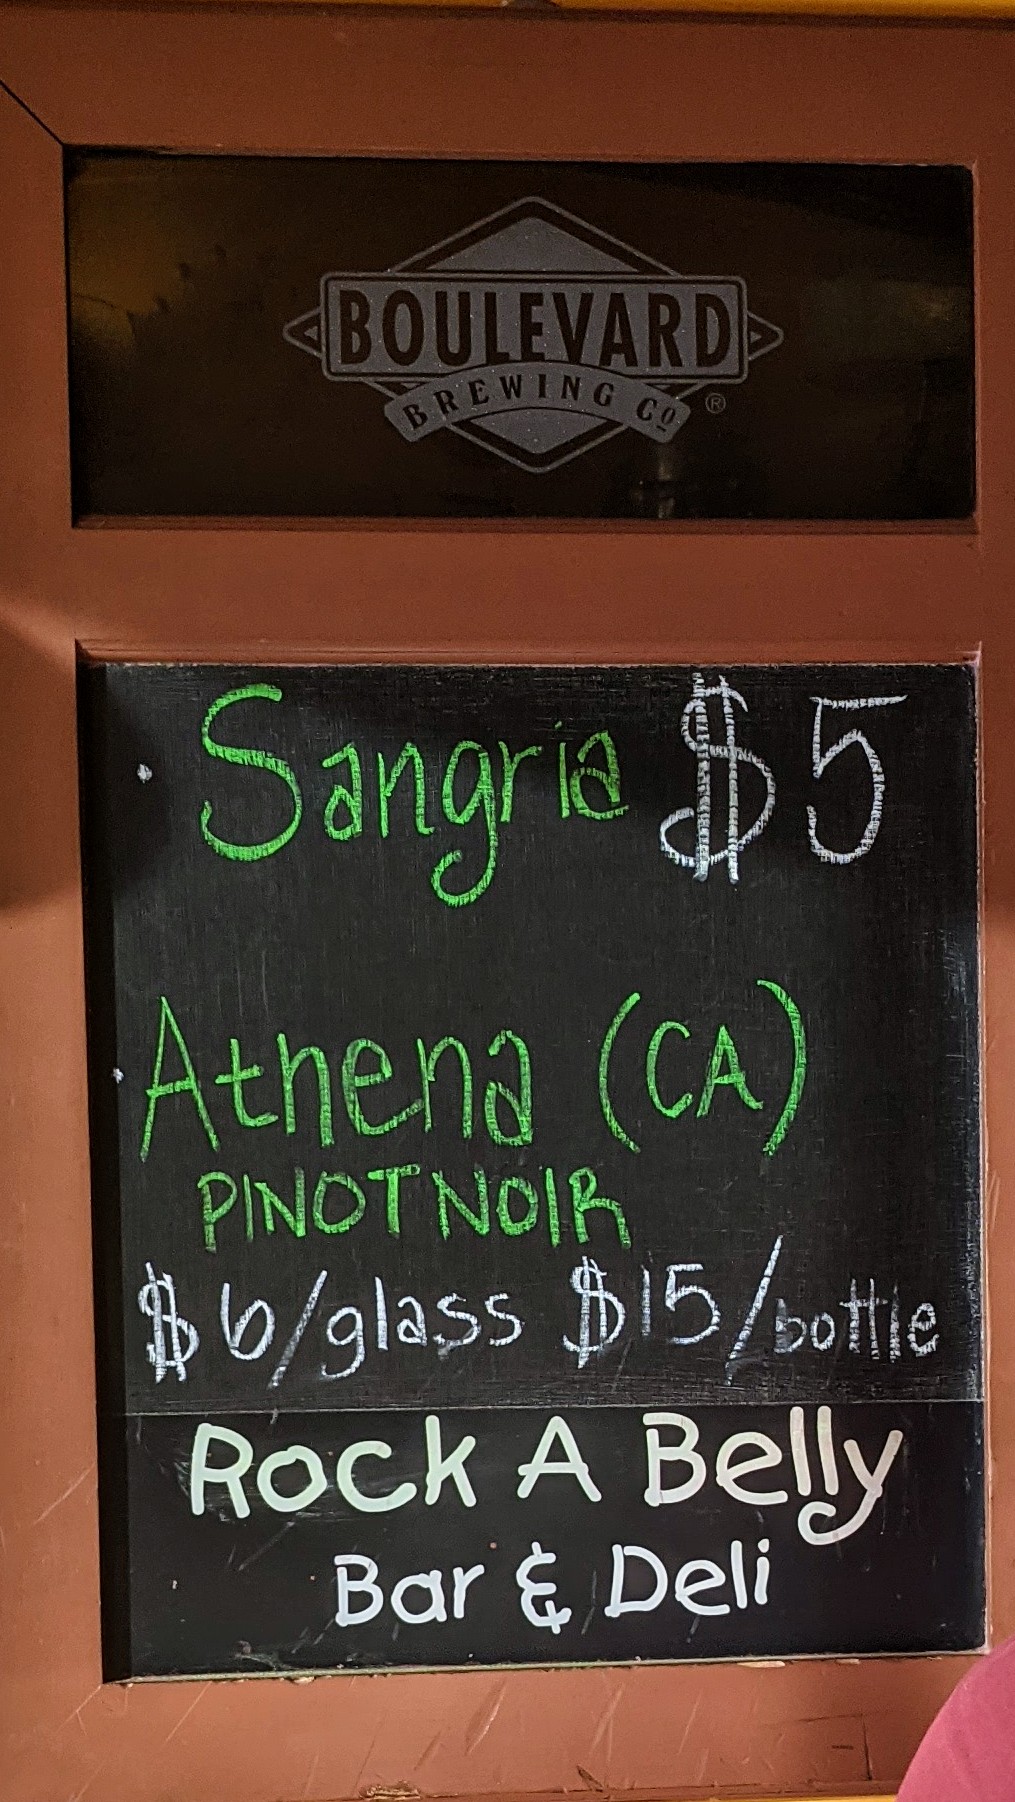 BOULEVARD
BREWING Co ®
Sangria $5
Athena (CA)
PINOT NOIR
$6/glass $15/bottle
Rock A Belly
Bar & Deli